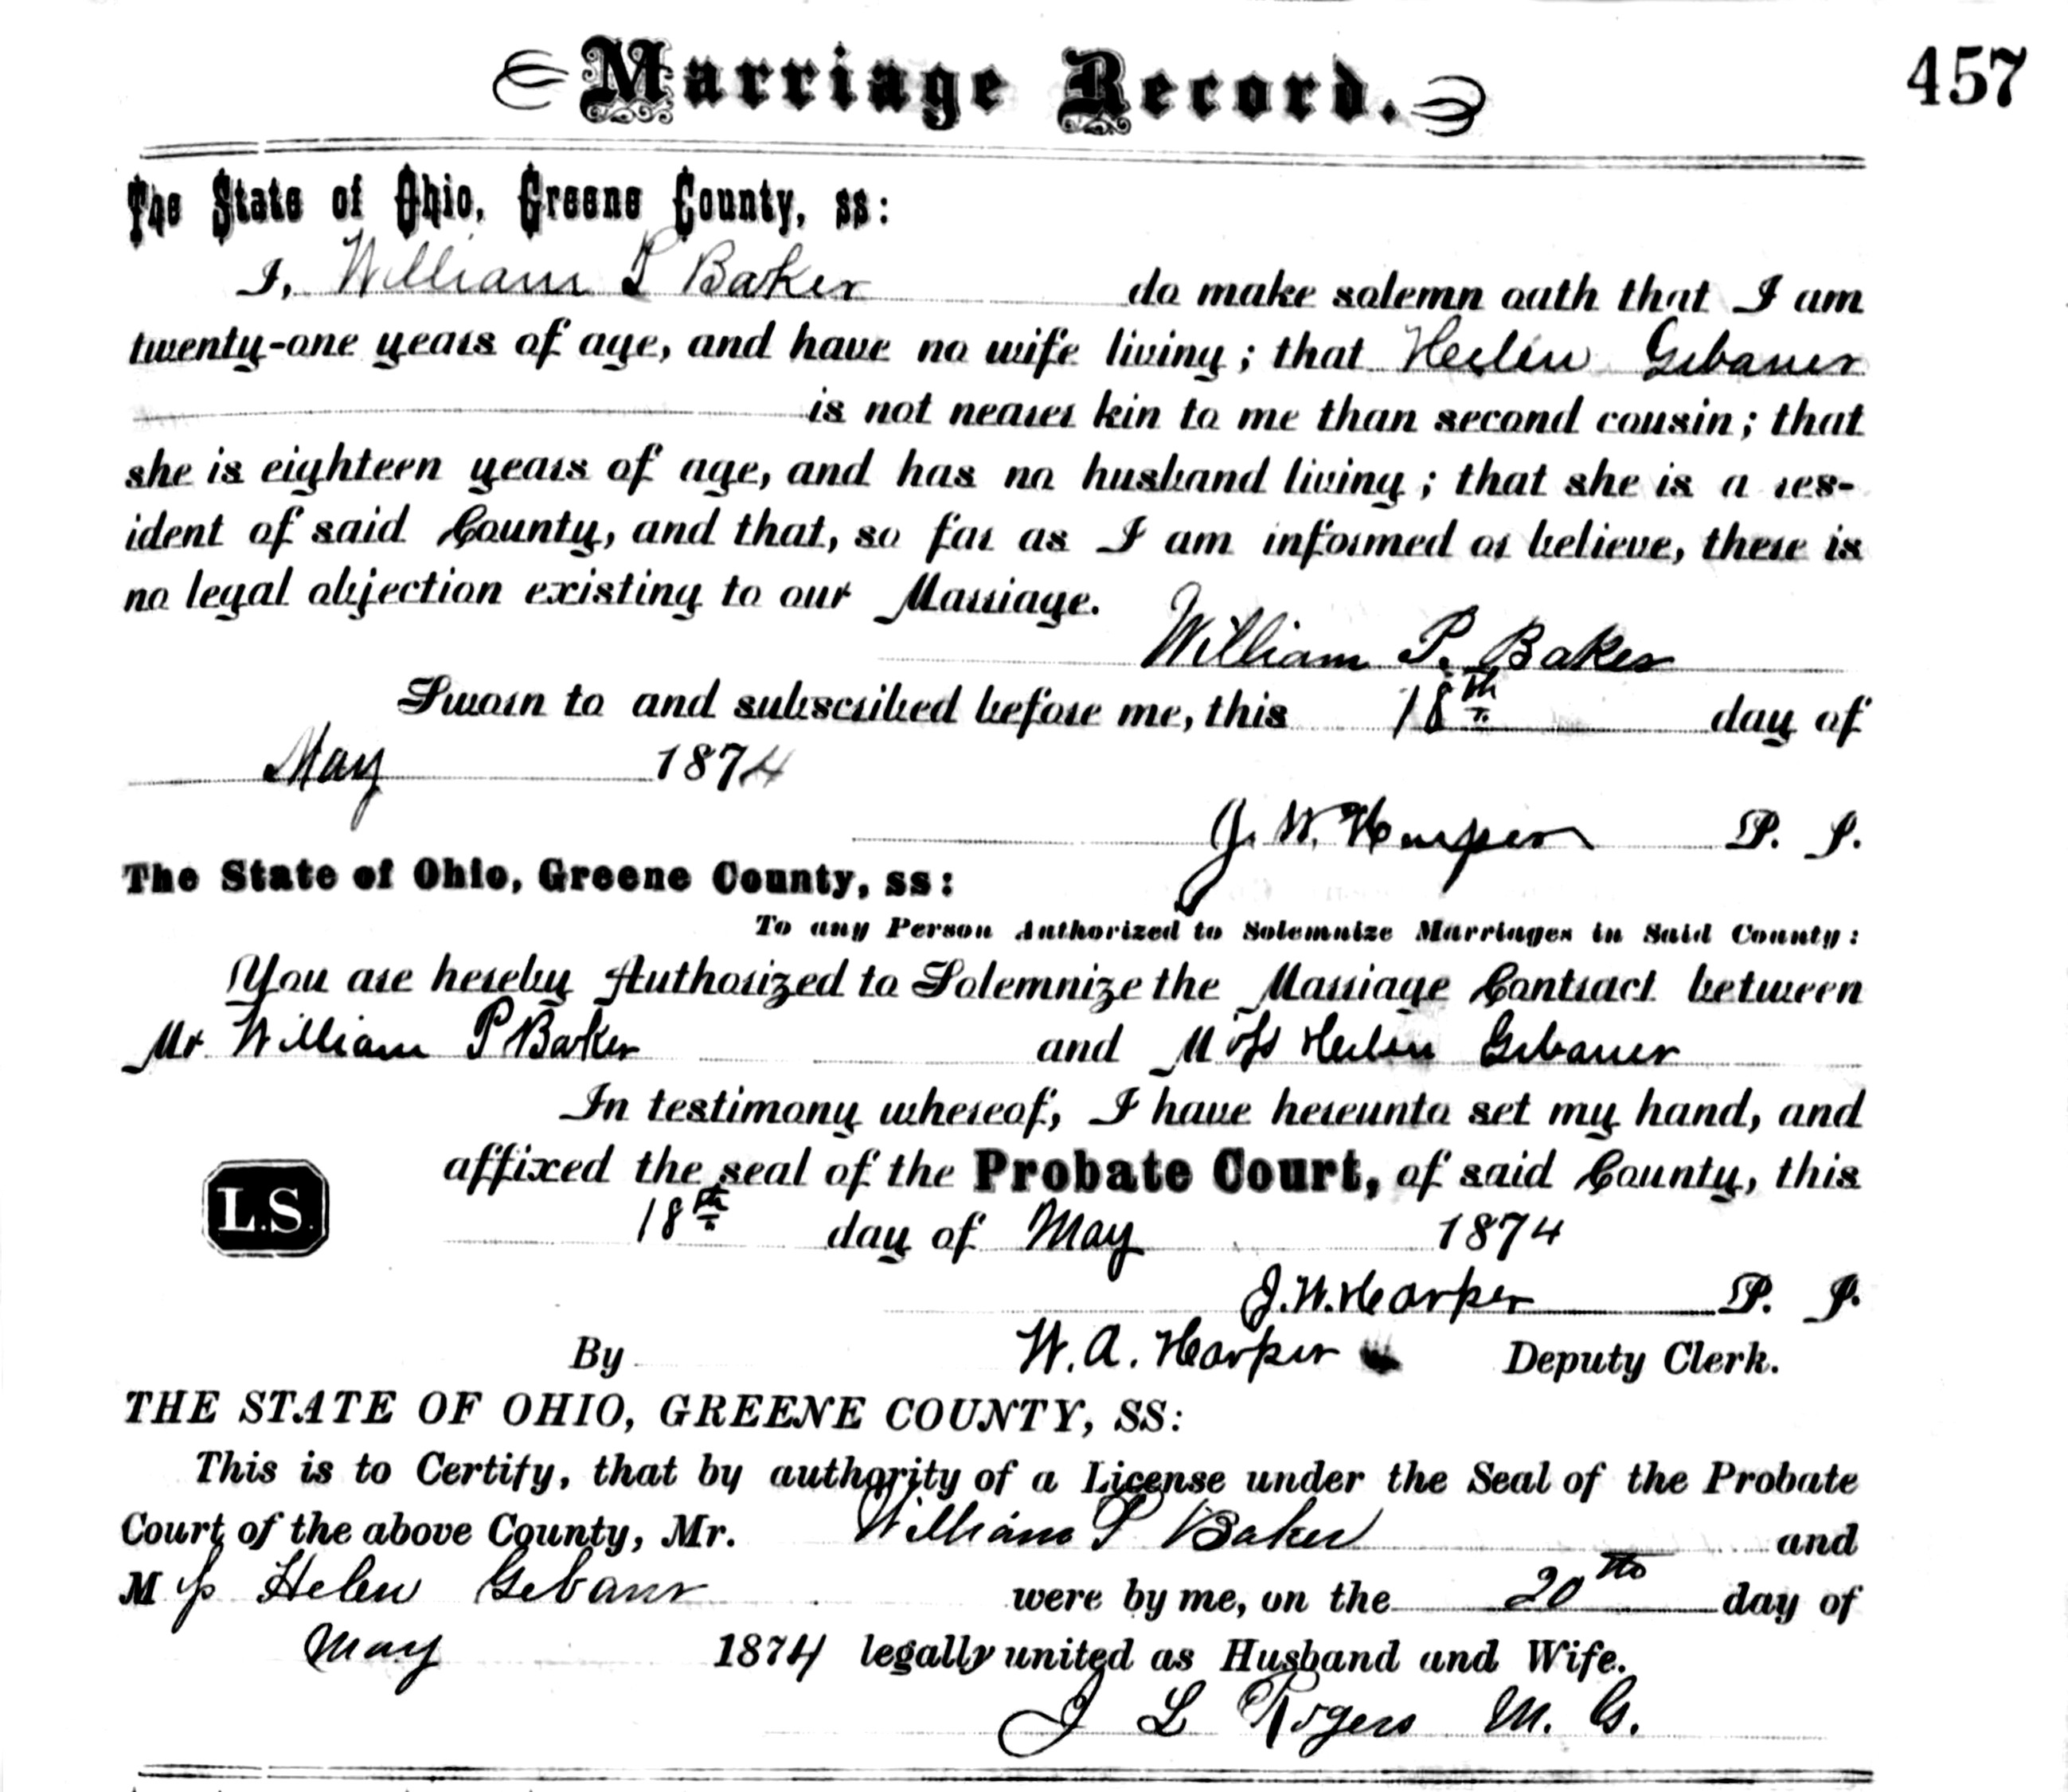 Marriage Record.
457
The State of Ohio, Greene County, ss:
I, William P Baker do make solemn oath that I am
twenty-one years of age, and have no wife living; that Heilen Gebauer
is not nearer kin to me than second cousin; that
she is eighteen years of age, and has no husband living; that she is a res-
ident of said County, and that, so far as I am informed or believe, there is
no legal objection existing to our Marriage.
William P. Baker
Sworn to and subscribed before me, this 18th day of
May 1874
J. W. Harper P. J.
The State of Ohio, Greene County, ss:
To any Person Authorized to Solemnize Marriages in Said County:
You are hereby Authorized to Solemnize the Marriage Contract between
Mr William P Baker and Miss Heilen Gebauer
In testimony whereof, I have hereunto set my hand, and
affixed the seal of the Probate Court, of said County, this
L.S.
18th day of May 1874
J. W. Harper P. J.
By W. A. Harper Deputy Clerk.
THE STATE OF OHIO, GREENE COUNTY, SS:
This is to Certify, that by authority of a License under the Seal of the Probate
Court of the above County, Mr. William P Baker and
Mis Helen Gebaur were by me, on the 20th day of
May 1874 legally united as Husband and Wife.
J L Rogers M. G.